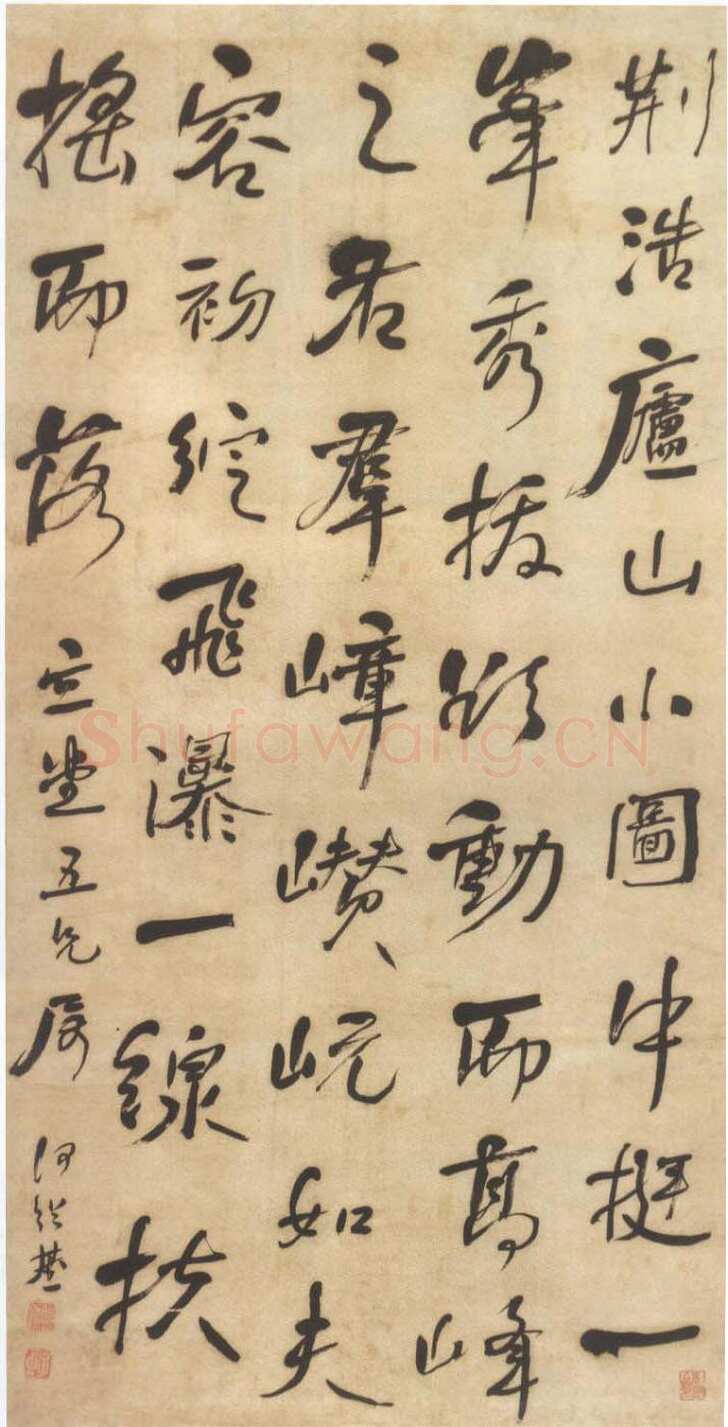 荆浩廬山小圖中挺一
峯秀拔欲動而高峰
之右羣嶂巑岏如夫
容初綻飛瀑一線扶
搖而落
堂五兄屬
何紹基
Shufawang.CN